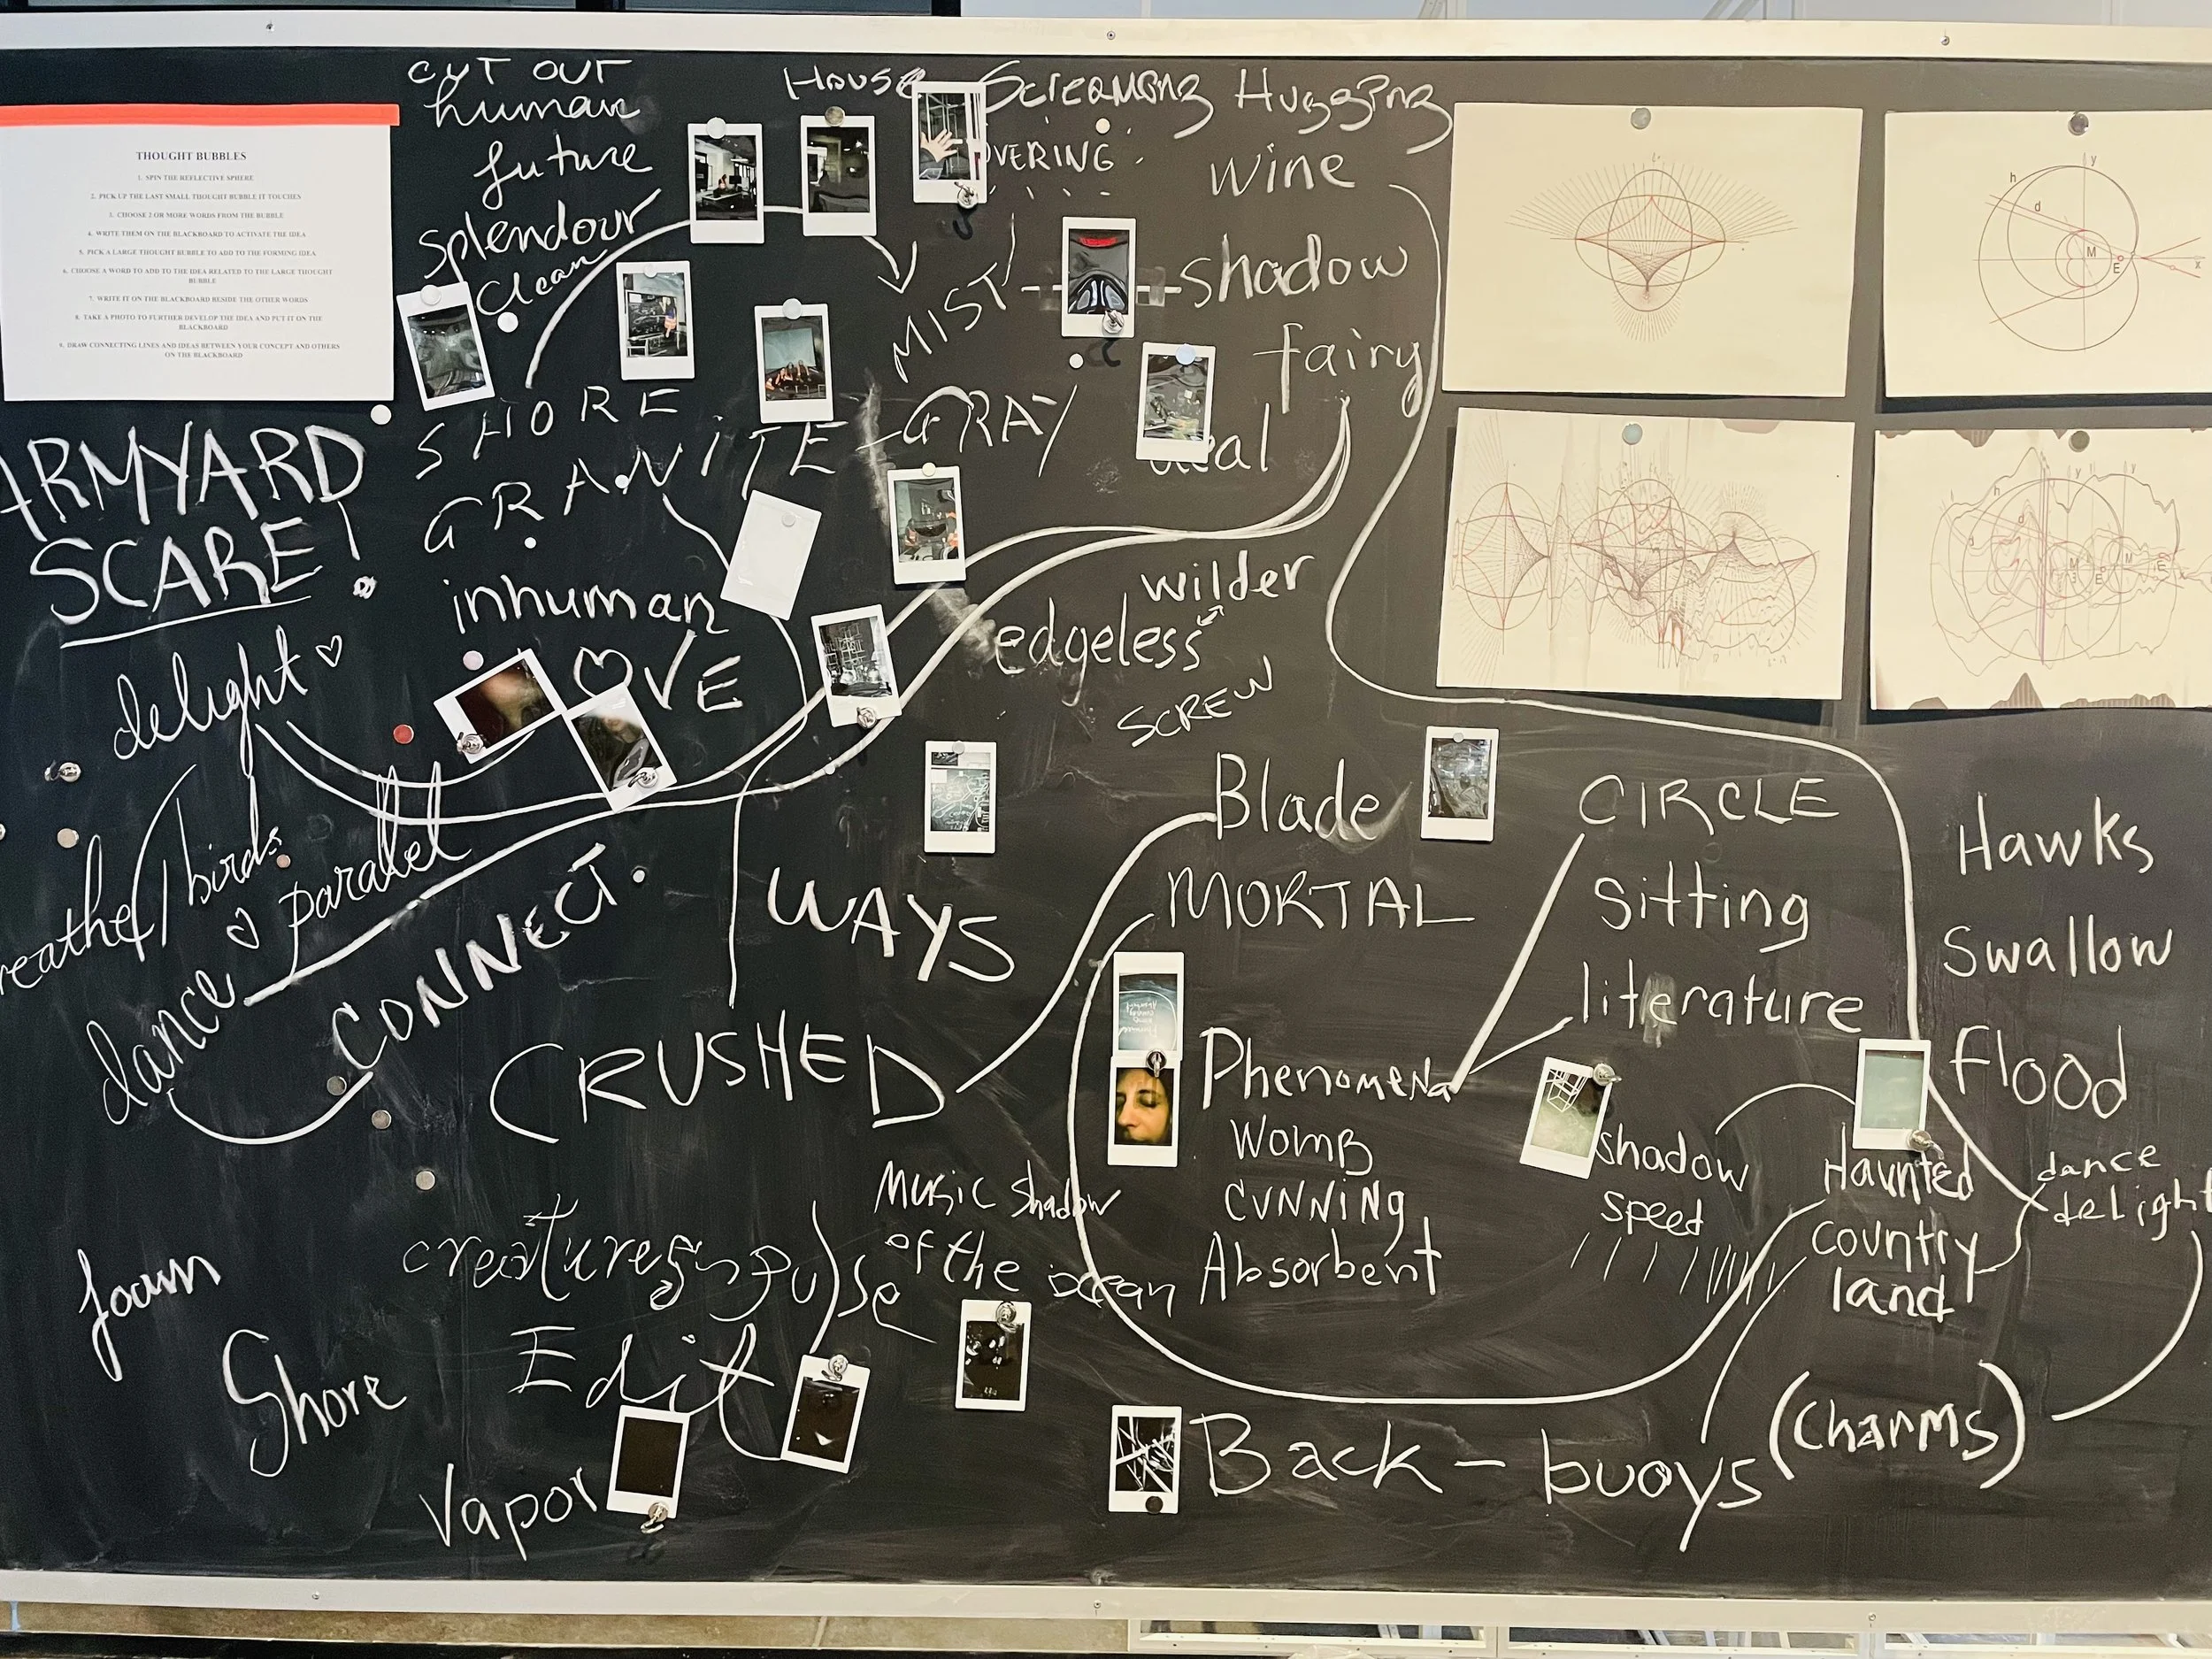 THOUGHT BUBBLES
1. SPIN THE REFLECTIVE SPHERE
2. PICK UP THE LAST SMALL THOUGHT BUBBLE IT TOUCHES
3. CHOOSE 2 OR MORE WORDS FROM THE BUBBLE
4. WRITE THEM ON THE BLACKBOARD TO ACTIVATE THE IDEA
5. PICK A LARGE THOUGHT BUBBLE TO ADD TO THE FORMING IDEA
6. CHOOSE A WORD TO ADD TO THE IDEA RELATED TO THE LARGE THOUGHT
BUBBLE
7. WRITE IT ON THE BLACKBOARD BESIDE THE OTHER WORDS
8. TAKE A PHOTO TO FURTHER DEVELOP THE IDEA AND PUT IT ON THE
BLACKBOARD
9. DRAW CONNECTING LINES AND IDEAS BETWEEN YOUR CONCEPT AND OTHERS
ON THE BLACKBOARD
CUT OUT
human
future
splendour
clean
HOUSE
Screaming Hugging
OVERING
wine
MIST
shadow
fairy
SHORE
GRANITE - GRAY
eal
ARMYARD
SCARE!
inhuman
OVE
delight
wilder
edgeless
SCREW
reathe
birds
parallel
dance
CONNECT
WAYS
CRUSHED
Blade
MORTAL
CIRCLE
Sitting
literature
Hawks
Swallow
Flood
Phenomena
WOMB
CUNNING
Absorbent
shadow
speed
Haunted
country
land
dance
delight
Music shadow
of the ocean
creatures
pulse
Edit
foam
Shore
Vapor
Back - buoys
(charms)
h
d
y
M
E
x